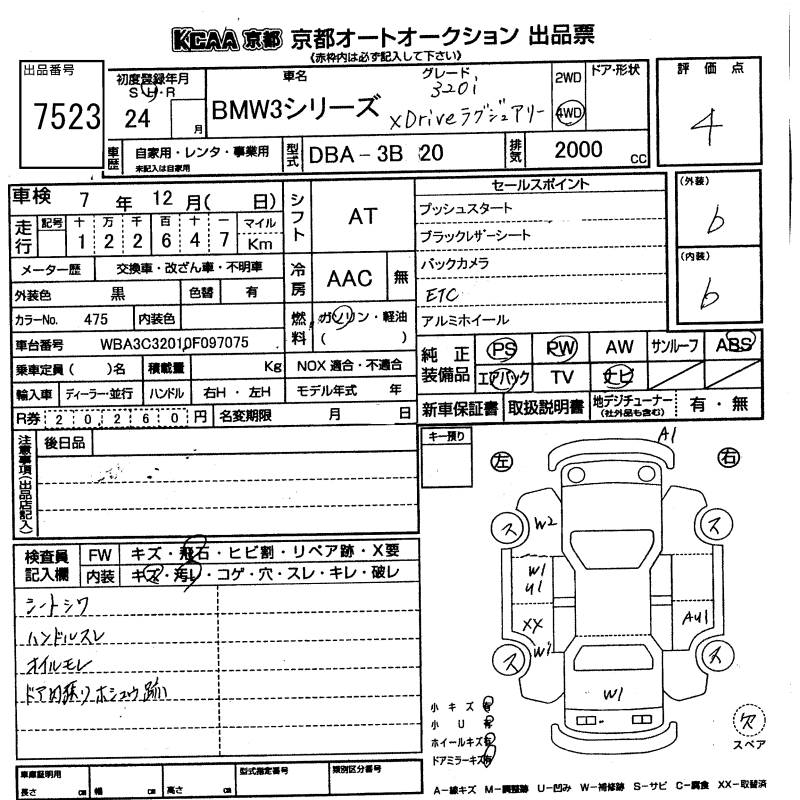 KCAA 京都 京都オートオークション 出品票
(赤枠内は必ず記入して下さい)
出品番号
7523
初度登録年月
S H・R
24 月
車名
BMW3シリーズ
グレード
320i
xDriveラグジュアリー
2WD
4WD
ドア・形状
評価点
4
車歴
自家用・レンタ・事業用
未記入は自家用
型式
DBA-3B 20
排気
2000 cc
車検 7年 12月( 日)
走行
記号 十 万 千 百 十 一 マイル
1 2 2 6 4 7 Km
メーター歴 交換車・改ざん車・不明車
外装色 黒 色替 有
カラーNo. 475 内装色
車台番号 WBA3C32010F097075
乗車定員( )名 積載量 Kg
輸入車 ディーラー・並行 ハンドル 右H・左H
R券 20,260円 名変期限 月 日
シフト AT
冷房 AAC 無
燃料 ガソリン・軽油
( )
NOX 適合・不適合
モデル年式 年
セールスポイント
プッシュスタート
ブラックレザーシート
バックカメラ
ETC
アルミホイール
(外装)
b
(内装)
b
純正装備品
PS PW AW サンルーフ ABS
エアバック TV ナビ
新車保証書 取扱説明書 地デジチューナー(社外品も含む) 有・無
注意事項(出品店記入)
後日品
キー預り
検査員記入欄
FW キズ・飛石・ヒビ割・リペア跡・X要
内装 キズ・汚レ・コゲ・穴・スレ・キレ・破レ
シートシワ
ハンドルスレ
オイルモレ
ドア内張りホシュウ跡
左 右
A1
ス ス
W2
W1
U1
XX
W1
AU1
ス ス
W1
小キズ 有
小U 有
ホイールキズ 有
ドアミラーキズ 有
欠
スペア
車庫証明用
長さ cm 幅 cm 高さ cm
型式指定番号
類別区分番号
A-線キズ M-調整跡 U-凹み W-補修跡 S-サビ C-腐食 XX-取替済